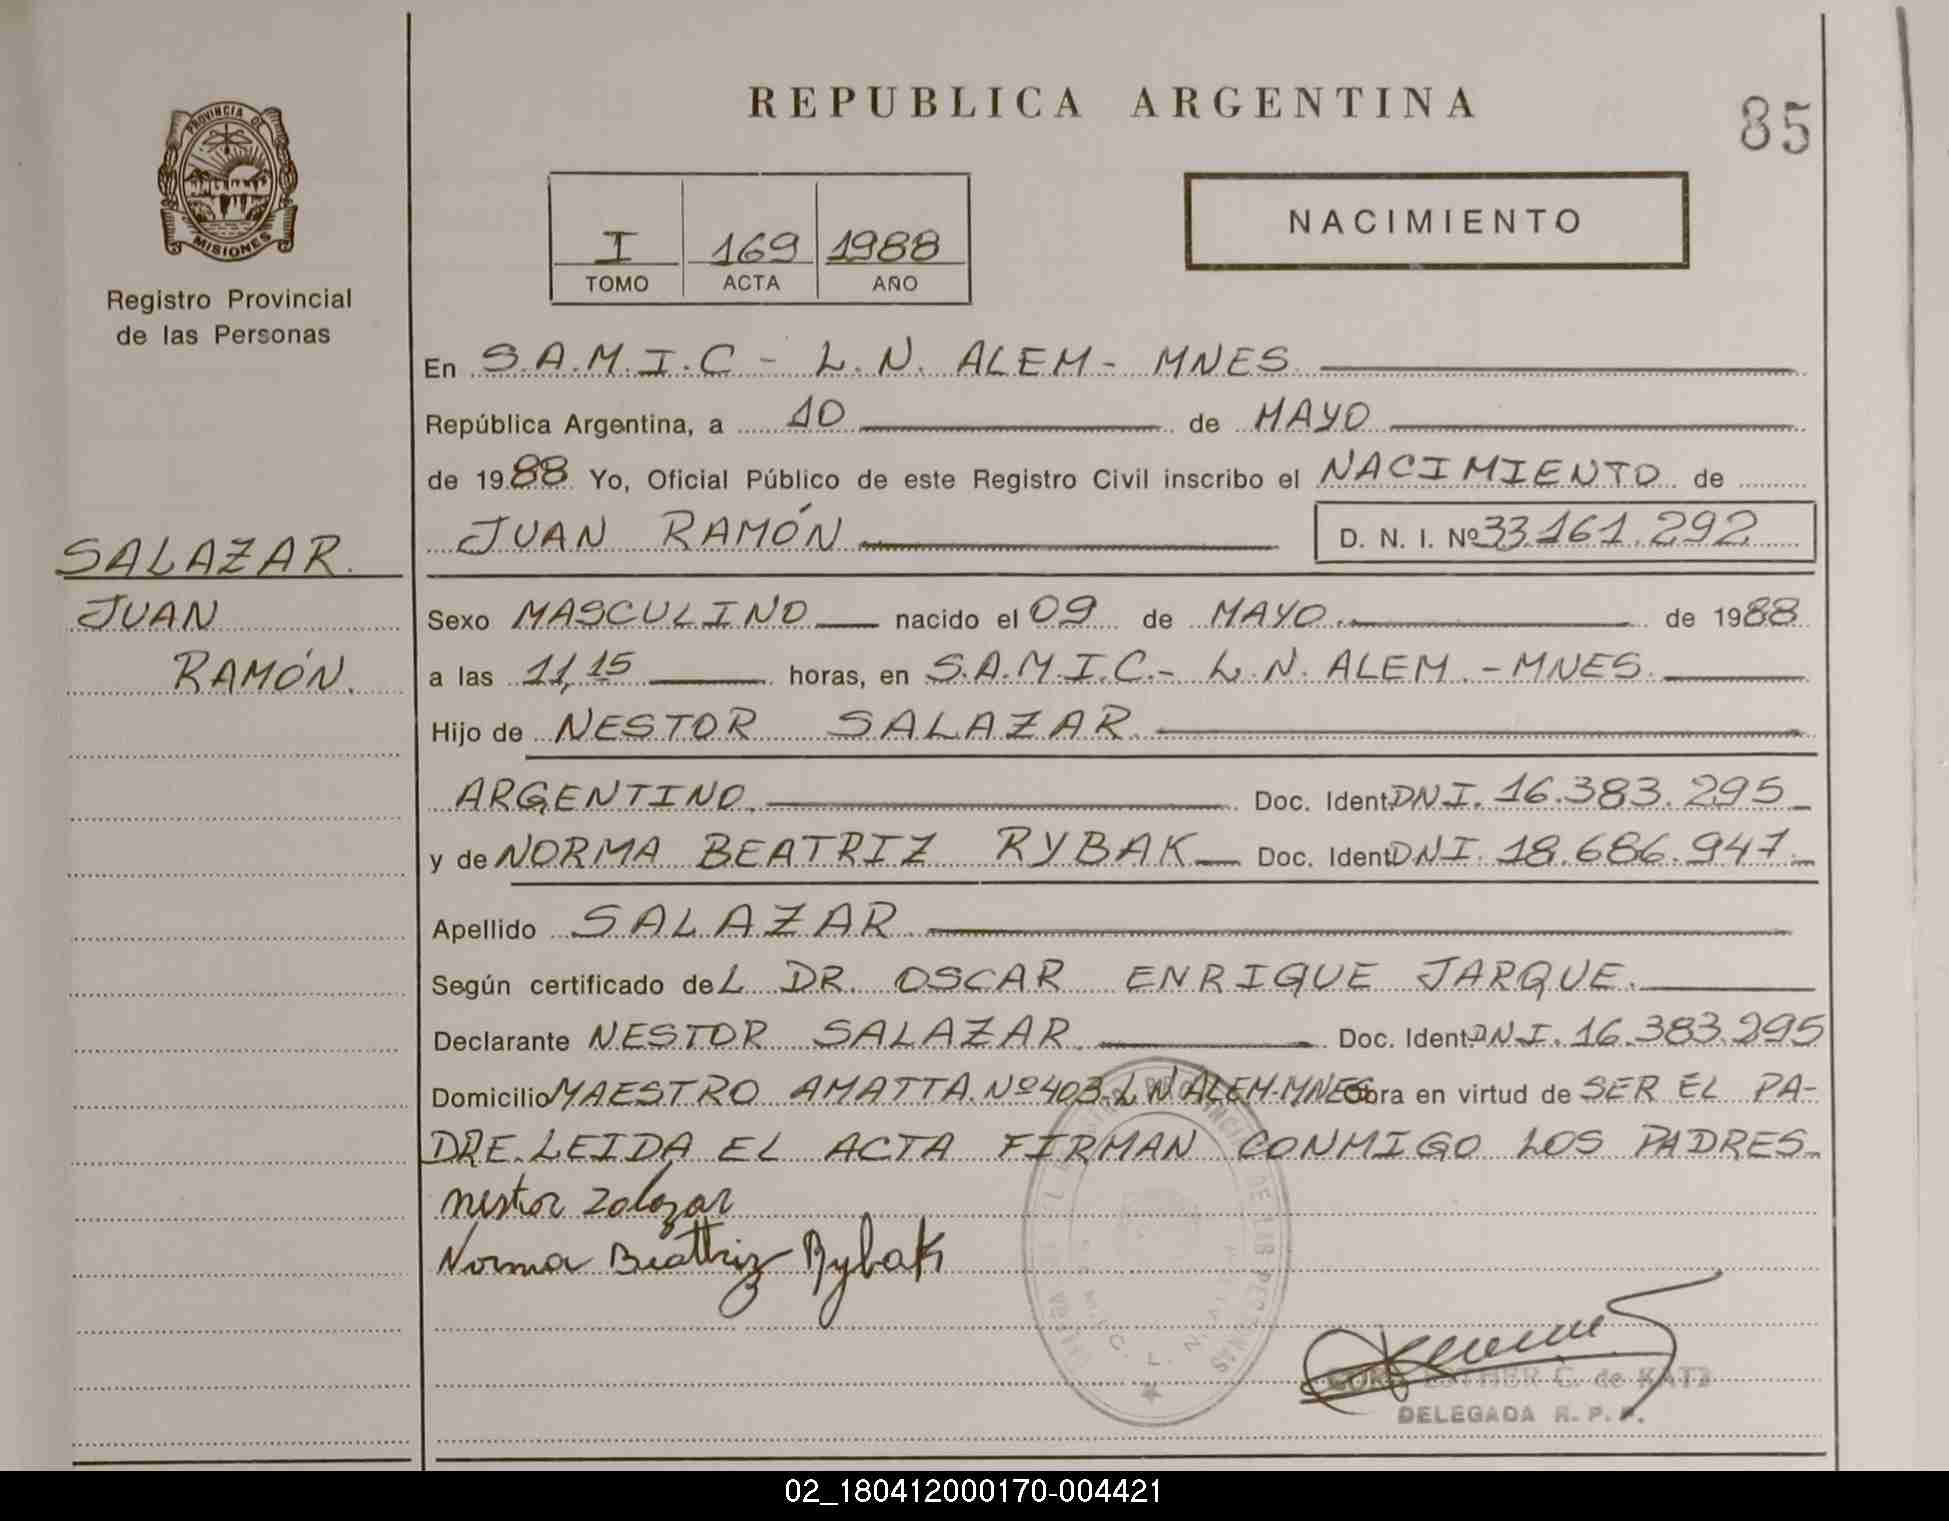 REPUBLICA ARGENTINA
85
PROVINCIA DE
MISIONES
Registro Provincial
de las Personas
NACIMIENTO
I 169 1988
TOMO ACTA AÑO
En S.A.M.I.C - L.N. ALEM - MNES
República Argentina, a 10 de MAYO
de 1988 Yo, Oficial Público de este Registro Civil inscribo el NACIMIENTO de
JUAN RAMÓN D. N. I. Nº 33.161.292
SALAZAR.
JUAN
RAMÓN.
Sexo MASCULINO nacido el 09 de MAYO. de 1988
a las 11,15 horas, en S.A.M.I.C.- L.N. ALEM. - MNES.
Hijo de NESTOR SALAZAR.
ARGENTINO. Doc. Ident. DNI. 16.383.295
y de NORMA BEATRIZ RYBAK Doc. Ident. DNI. 18.686.947.
Apellido SALAZAR.
Según certificado deL DR. OSCAR ENRIQUE JARQUE.
Declarante NESTOR SALAZAR. Doc. Ident. DNI. 16.383.295
Domicilio MAESTRO AMATTA. Nº 403-L N ALEM-MNES Obra en virtud de SER EL PA-
DRE. LEIDA EL ACTA FIRMAN CONMIGO LOS PADRES
nestor zalazar
Norma Beattriz Rybak
ESTHER G. de KATZ
DELEGADA R. P. P.
02_180412000170-004421